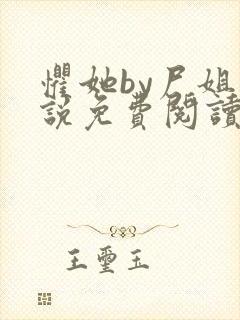 懼她by尸姐
說免費閱讀
王璽玉